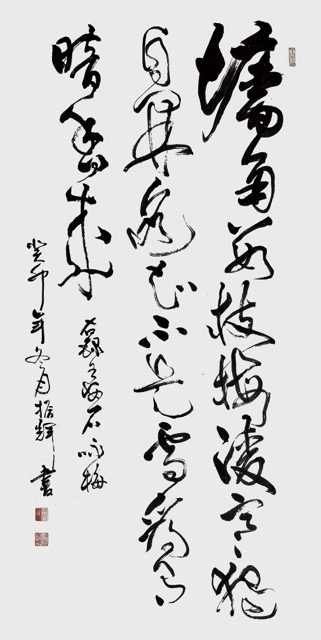 墙角数枝梅凌寒独
自开遥知不是雪為有
暗香来
右録王安石咏梅
癸卯年冬月 書